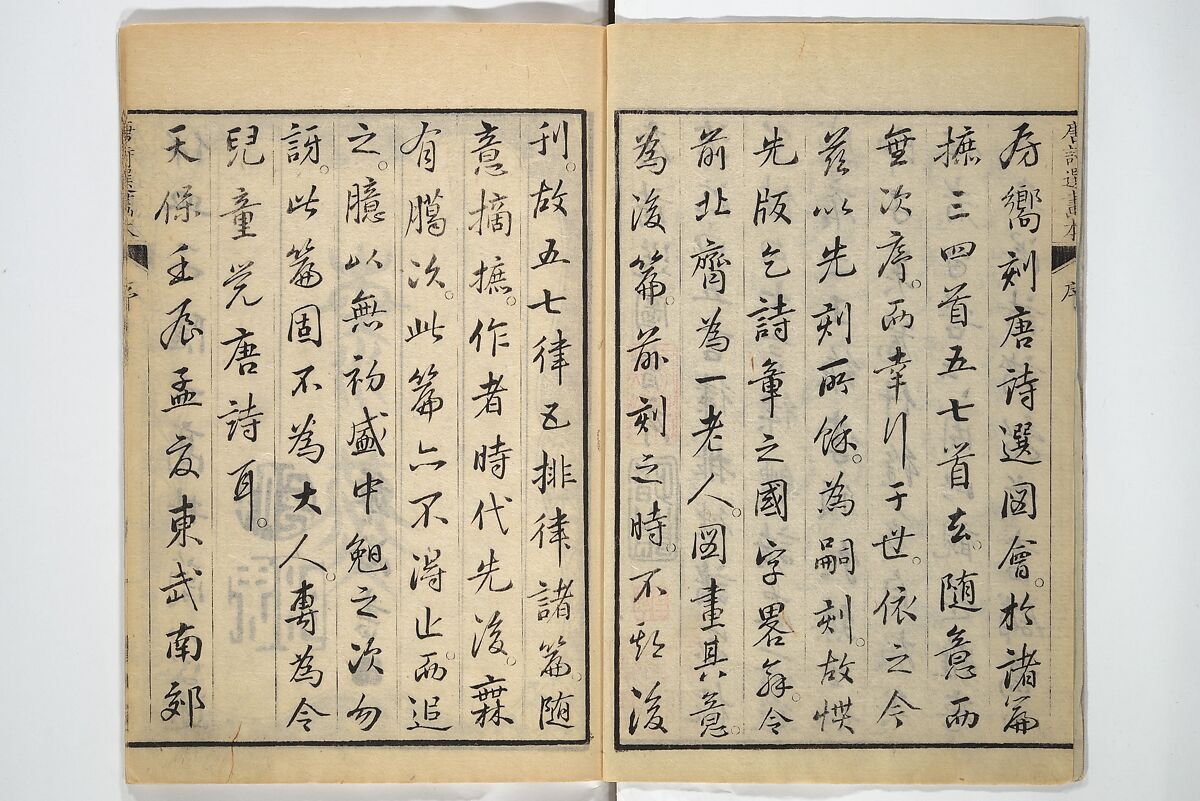 唐詩選畫本 序
房嚮刻唐詩選図會。於諸篇
摭三四首五七首去。随意而
無次序。而幸行于世。依之今
茲以先刻所餘。為嗣刻。故
先版乞詩章之國字畧解。今
前北齋為一老人。図畫其意。
為後篇。前刻之時。不期後
刊。故五七律五排律諸篇。随
意摘摭。作者時代先後。橆
有臈次。此篇亦不得止。而追
之。臆以無初盛中晚之次勿
訝。此篇固不為大人。專為令
兒童覚唐詩耳。
天保壬辰孟夏東武南郊
唐詩選畫本 序